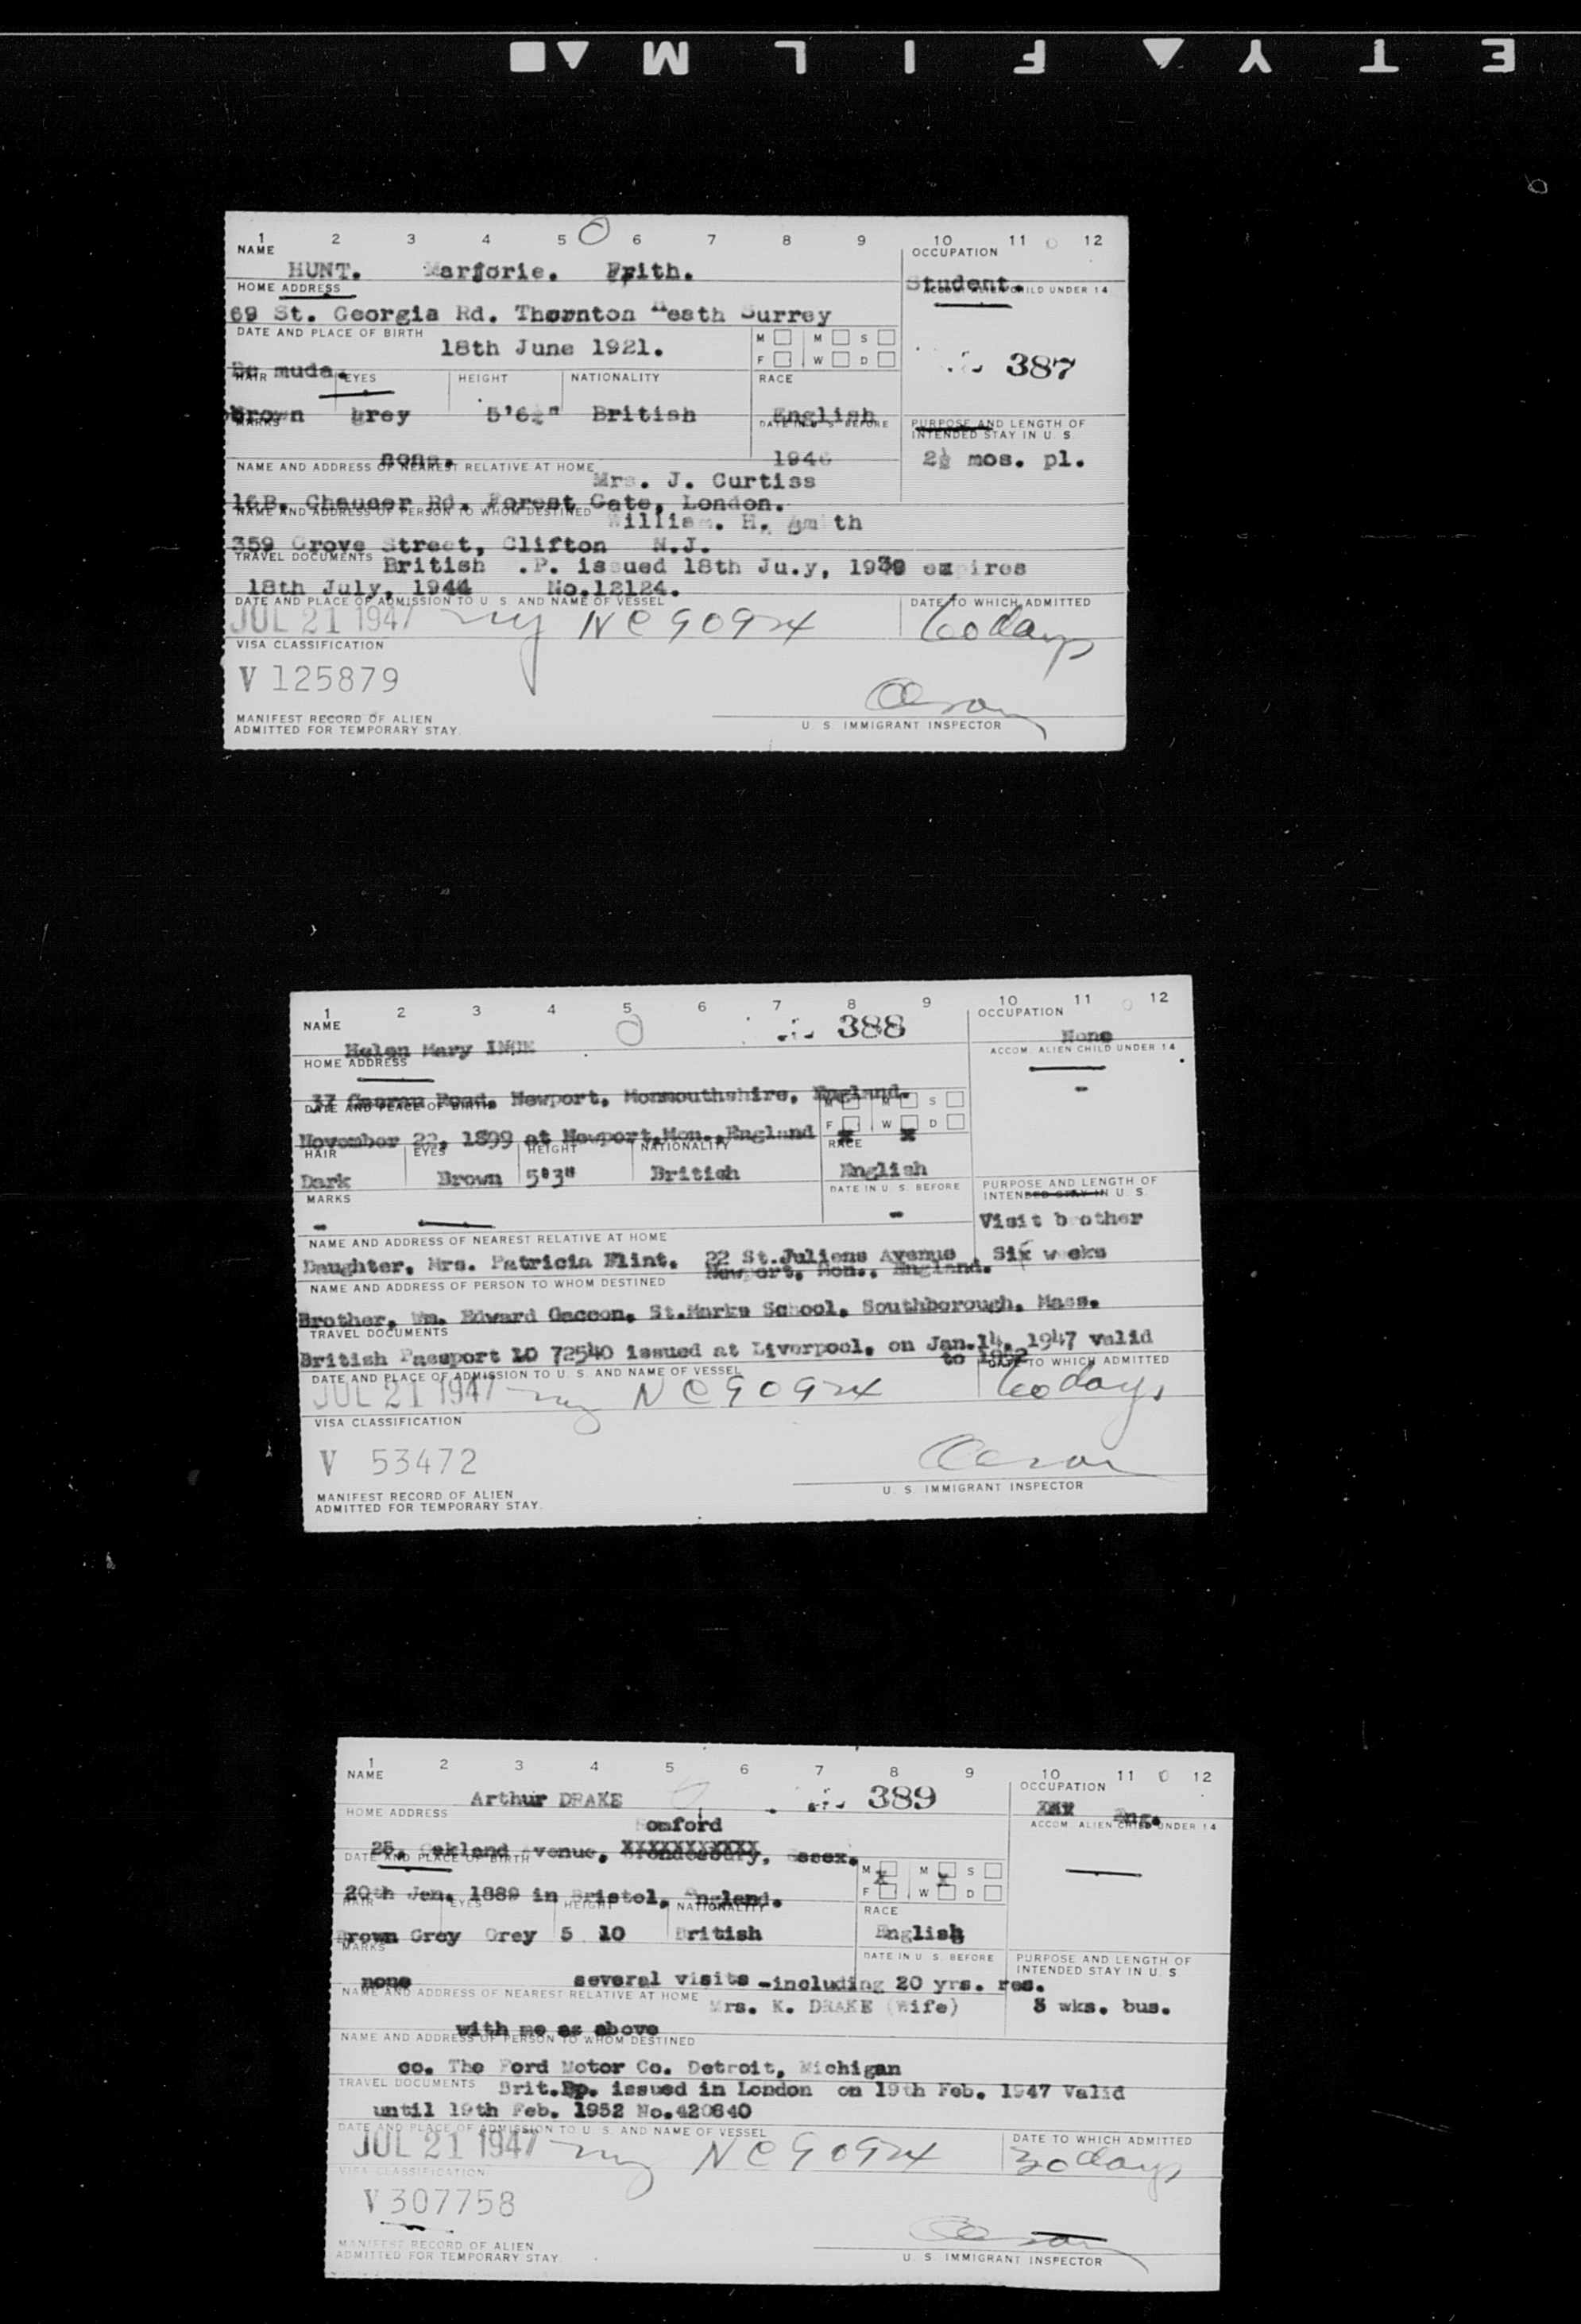 E T Y F I L M
1 2 3 4 5 6 7 8 9 10 11 12
NAME OCCUPATION
HUNT. Marjorie. Frith.
Student.
HOME ADDRESS ACCOM. ALIEN CHILD UNDER 14
69 St. Georgia Rd. Thornton Heath Surrey
DATE AND PLACE OF BIRTH M M S
18th June 1921.
F W D
387
Be muda.
HAIR EYES HEIGHT NATIONALITY RACE
Brown grey 5'6½" British English
MARKS DATE IN U. S. BEFORE PURPOSE AND LENGTH OF
INTENDED STAY IN U. S.
none. 1946 2½ mos. pl.
NAME AND ADDRESS OF NEAREST RELATIVE AT HOME
Mrs. J. Curtiss
16B. Chaucer Rd. Forest Gate, London.
NAME AND ADDRESS OF PERSON TO WHOM DESTINED
William. H. Smith
359 Grove Street, Clifton N.J.
TRAVEL DOCUMENTS
British .P. issued 18th Ju.y, 1939 expires
18th July, 1944 No.12124.
DATE AND PLACE OF ADMISSION TO U. S. AND NAME OF VESSEL DATE TO WHICH ADMITTED
JUL 21 1947 ny NC 90924 60 days
VISA CLASSIFICATION
V 125879
MANIFEST RECORD OF ALIEN
ADMITTED FOR TEMPORARY STAY.
U. S. IMMIGRANT INSPECTOR
1 2 3 4 5 6 7 8 9 10 11 12
NAME 388 OCCUPATION
Helen Mary None
HOME ADDRESS ACCOM. ALIEN CHILD UNDER 14
37 Road, Newport, Monmouthshire, England. -
DATE AND PLACE OF BIRTH M M S
November 22, 1899 at Newport, Mon., England F x W x D
HAIR EYES HEIGHT NATIONALITY RACE
Dark Brown 5'3" British English
MARKS DATE IN U. S. BEFORE PURPOSE AND LENGTH OF
INTENDED STAY IN U. S.
- - Visit b other
NAME AND ADDRESS OF NEAREST RELATIVE AT HOME
Daughter, Mrs. Patricia Flint. 22 St.Juliens Avenue Six weeks
Newport, Mon., England.
NAME AND ADDRESS OF PERSON TO WHOM DESTINED
Brother, Wm. Edward Gaccon, St.Marks School, Southborough, Mass.
TRAVEL DOCUMENTS
British Passport LO 72540 issued at Liverpool, on Jan.14, 1947 valid
to 1952
DATE AND PLACE OF ADMISSION TO U. S. AND NAME OF VESSEL DATE TO WHICH ADMITTED
JUL 21 1947 ny NC 90924 60 days
VISA CLASSIFICATION
V 53472
MANIFEST RECORD OF ALIEN
ADMITTED FOR TEMPORARY STAY.
U. S. IMMIGRANT INSPECTOR
1 2 3 4 5 6 7 8 9 10 11 12
NAME 389 OCCUPATION
Arthur DRAKE Eng.
HOME ADDRESS ACCOM. ALIEN CHILD UNDER 14
Romford
25, Oakland Avenue, XXXXXXXXXXX, Essex.
DATE AND PLACE OF BIRTH M x M x S
20th Jan. 1889 in Bristol, England. F W D
HAIR EYES HEIGHT NATIONALITY RACE
Brown Grey Grey 5 10 British English
MARKS DATE IN U. S. BEFORE PURPOSE AND LENGTH OF
INTENDED STAY IN U. S.
none several visits -including 20 yrs. res.
NAME AND ADDRESS OF NEAREST RELATIVE AT HOME
Mrs. K. DRAKE (Wife) 3 wks. bus.
with me as above
NAME AND ADDRESS OF PERSON TO WHOM DESTINED
co. The Ford Motor Co. Detroit, Michigan
TRAVEL DOCUMENTS
Brit.Pp. issued in London on 19th Feb. 1947 Valid
until 19th Feb. 1952 No.420640
DATE AND PLACE OF ADMISSION TO U. S. AND NAME OF VESSEL DATE TO WHICH ADMITTED
JUL 21 1947 ny NC 90924 30 days
VISA CLASSIFICATION
V 307758
MANIFEST RECORD OF ALIEN
ADMITTED FOR TEMPORARY STAY.
U. S. IMMIGRANT INSPECTOR